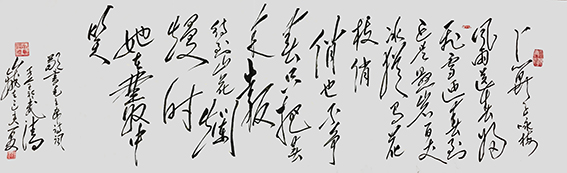 卜算子咏梅
风雨送春归
飞雪迎春到
已是悬崖百丈
冰犹有花
枝俏
俏也不争
春只把春
来报
待到山花烂
漫时
她在丛中
笑